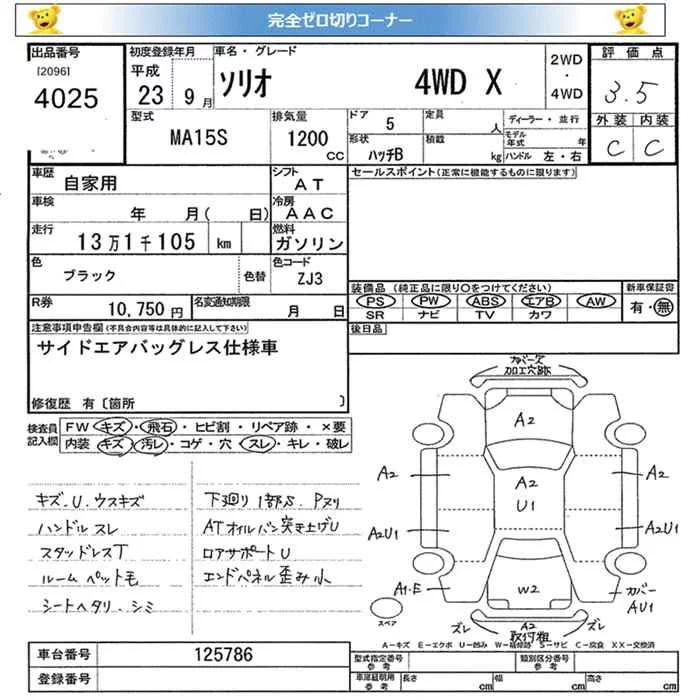 完全ゼロ切りコーナー
出品番号
[2096]
4025
初度登録年月
平成
23年 9月
車名・グレード
ソリオ 4WD X
2WD
・
4WD
評価点
3.5
外装 内装
C C
型式
MA15S
排気量
1200
CC
ドア 5
定員 人
形状 ハッチB
積載 kg
ディーラー・並行
モデル年式 年
ハンドル 左・右
車歴
自家用
シフト
AT
車検
年 月( 日)
冷房
AAC
走行
13万1千105 km
燃料
ガソリン
色
ブラック
色替
色コード
ZJ3
R券
10,750円
名変通知期限
月 日
セールスポイント(正常に機能するものに限ります)
装備品 (純正品に限り○をつけてください)
新車保証書
PS PW ABS エアB AW
SR ナビ TV カワ
有・無
後日品
注意事項申告欄(不具合内容等は具体的に記入して下さい)
サイドエアバッグレス仕様車
修復歴 有〔箇所 〕
検査員記入欄
FW キズ・飛石・ヒビ割・リペア跡・×要
内装 キズ・汚レ・コゲ・穴・スレ・キレ・破レ
キズ.U.ウスキズ
ハンドルスレ
スタッドレスT
ルームペット毛
シートヘタリ.シミ
下廻り1部S.Pヌリ
ATオイルパン突き上げU
ロアサポートU
エンドペネル歪み小
カバーズレ
加工穴跡
A2
A2
A2
A2
U1
A2U1
A2U1
A1・E
W2
カバー
AU1
スペア
ズレ
A2
取付粗
ズレ
A−キズ E−エクボ U−凹み W−補修跡 S−サビ C−腐食 XX−交換済
車台番号
125786
登録番号
型式指定番号
参考
類別区分番号
参考
車庫証明用
参考
長さ cm
幅 cm
高さ cm